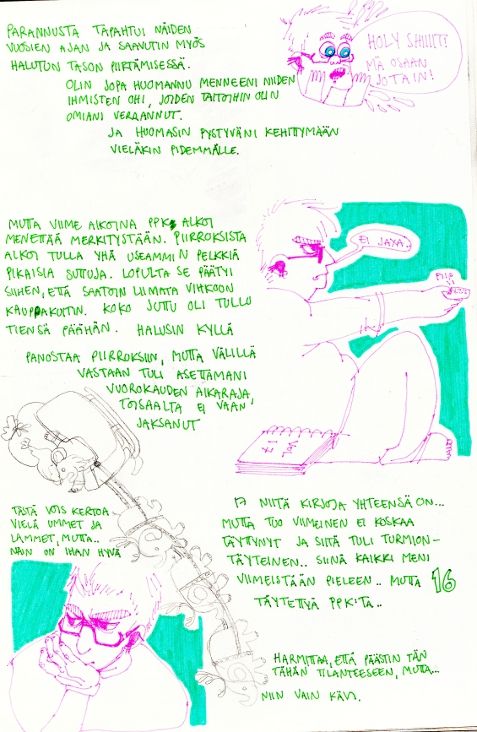 PARANNUSTA TAPAHTUI NÄIDEN
VUOSIEN AJAN JA SAAVUTIN MYÖS
HALUTUN TASON PIIRTÄMISESSÄ.
OLIN JOPA HUOMANNU MENNEENI NIIDEN
IHMISTEN OHI, JOIDEN TAITOIHIN OLIN
OMIANI VERRANNUT.
JA HUOMASIN PYSTYVÄNI KEHITTYMÄÄN
VIELÄKIN PIDEMMÄLLE.
HOLY SHIIIT!
MÄ OSAAN
JOTAIN!
MUTTA VIIME AIKOINA PPK ALKOI
MENETTÄÄ MERKITYSTÄÄN. PIIRROKSISTA
ALKOI TULLA YHÄ USEAMMIN PELKKIÄ
PIKAISIA SUTTUJA. LOPULTA SE PÄÄTYI
SIIHEN, ETTÄ SAATOIN LIIMATA VIHKOON
KAUPPAKUITIN. KOKO JUTTU OLI TULLU
TIENSÄ PÄÄHÄN. HALUSIN KYLLÄ
PANOSTAA PIIRROKSIIN, MUTTA VÄLILLÄ
VASTAAN TULI ASETTAMANI
VUOROKAUDEN AIKARAJA
TOISAALTA EI VAAN
JAKSANUT
EI JAXA.
TÄSTÄ VOIS KERTOA
VIELÄ UMMET JA
LAMMET, MUTTA..
NÄIN ON IHAN HYVÄ
17 NIITÄ KIRJOJA YHTEENSÄ ON...
MUTTA TUO VIIMEINEN EI KOSKAA
TÄYTTYNYT JA SIITÄ TULI TURMION-
TÄYTEINEN.. SIINÄ KAIKKI MENI
VIIMEISTÄÄN PIELEEN.. MUTTA 16
TÄYTETTYÄ PPK:TA..
HARMITTAA, ETTÄ PÄÄSTIN TÄN
TÄHÄN TILANTEESEEN, MUTTA...
NIIN VAIN KÄVI.